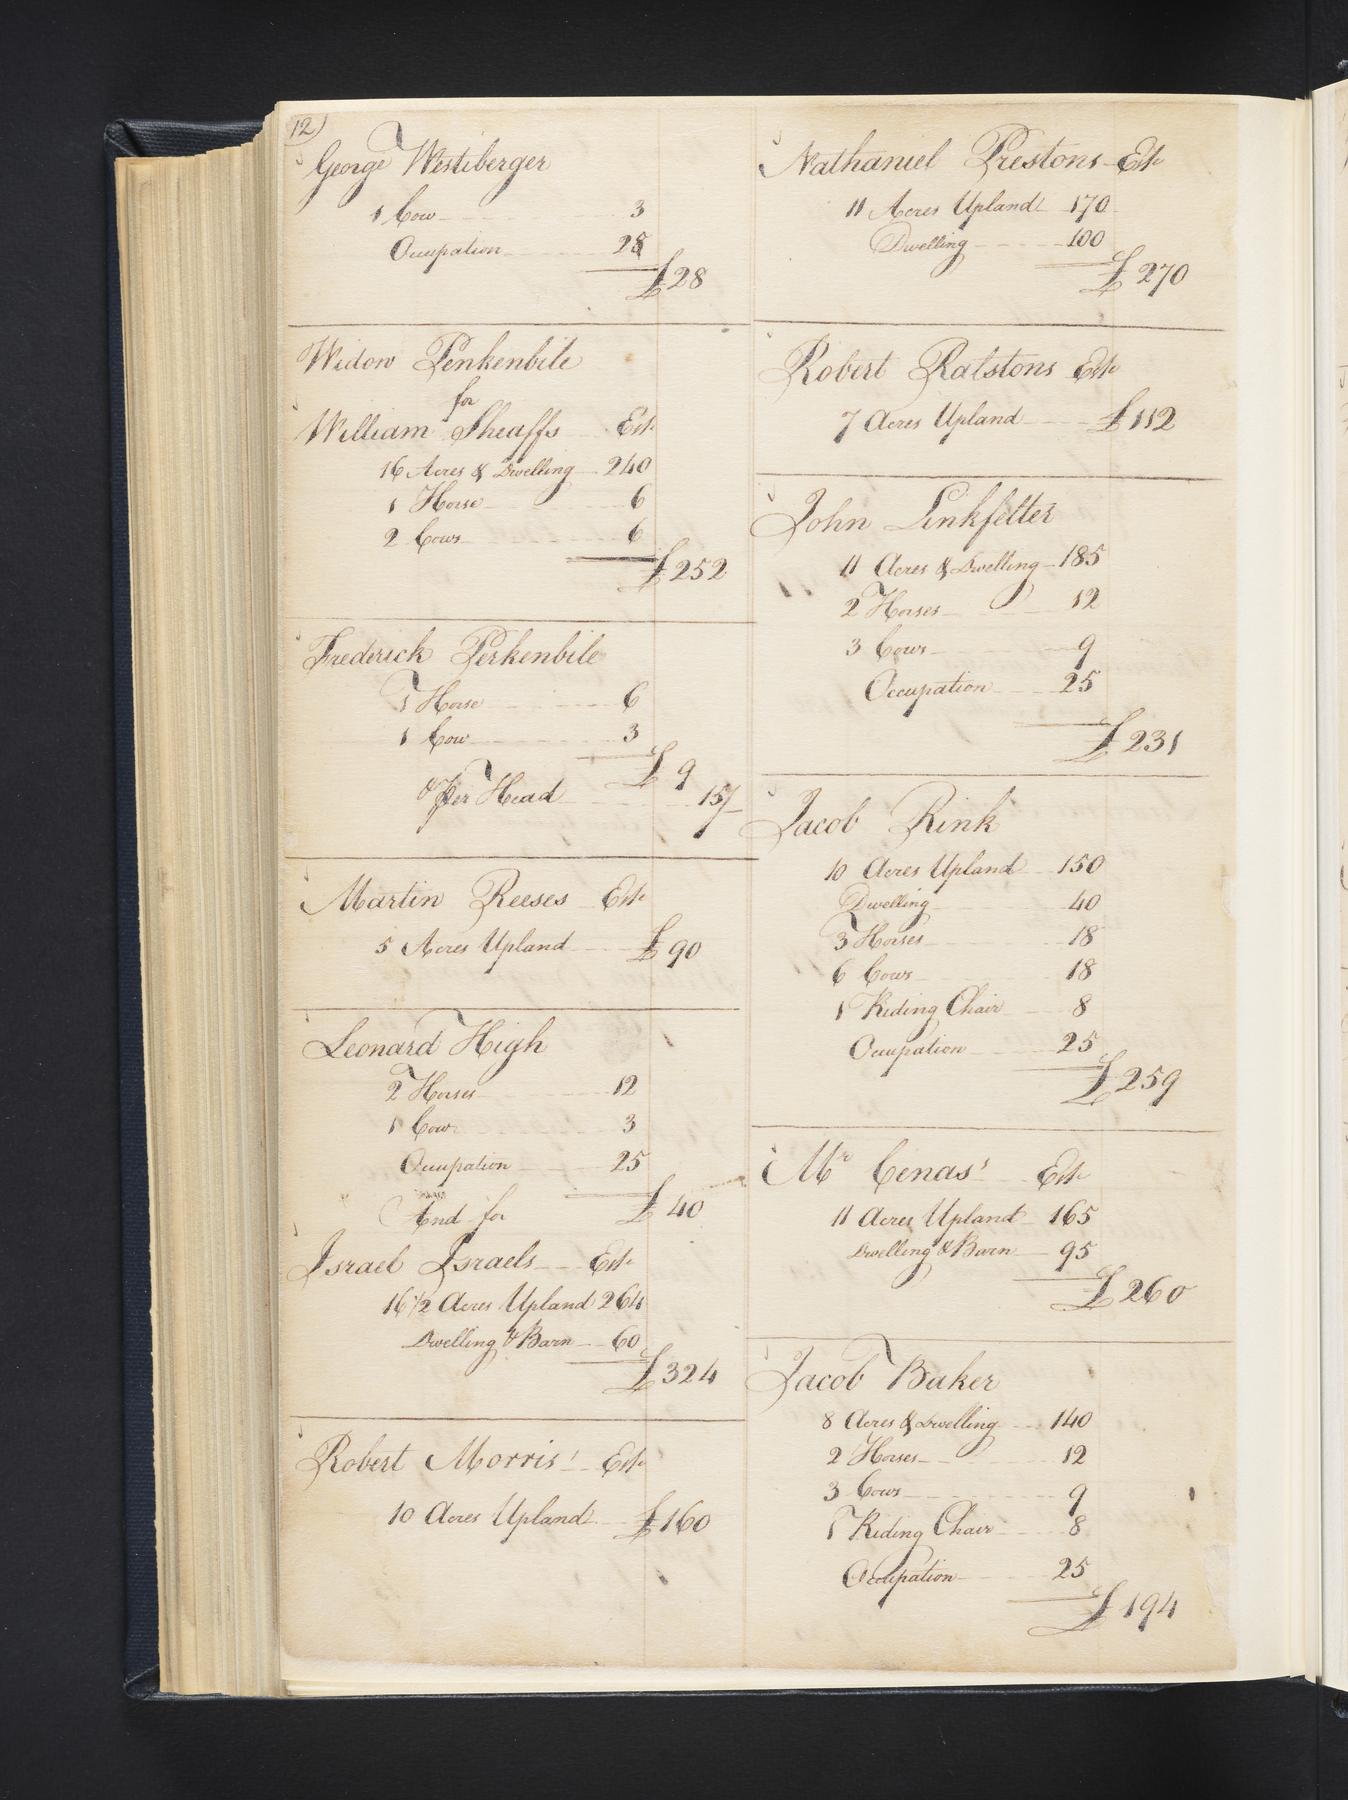 12)
George Westiberger
1 Cow 3
Occupation 25
£28
Widow Penkenbile
for
William Sheaffs Este
16 Acres & Dwelling 240
1 Horse 6
2 Cows 6
£252
Frederick Perkenbile
1 Horse 6
1 Cow 3
£9
& Per Head 15/
Martin Reeses Este
5 Acres Upland £90
Leonard High
2 Horses 12
1 Cow 3
Occupation 25
£40
And for
Israel Israels Este
16 1/2 Acres Upland 264
Dwelling & Barn 60
£324
Robert Morris' Este
10 Acres Upland £160
Nathaniel Prestons Este
11 Acres Upland 170
Dwelling 100
£270
Robert Ralstons Este
7 Acres Upland £112
John Linkfelter
11 Acres & Dwelling 185
2 Horses 12
3 Cows 9
Occupation 25
£231
Jacob Rink
10 Acres Upland 150
Dwelling 40
3 Horses 18
6 Cows 18
1 Riding Chair 8
Occupation 25
£259
Mr Cenas' Este
11 Acres Upland 165
Dwelling & Barn 95
£260
Jacob Baker
8 Acres & Dwelling 140
2 Horses 12
3 Cows 9
1 Riding Chair 8
Occupation 25
£194